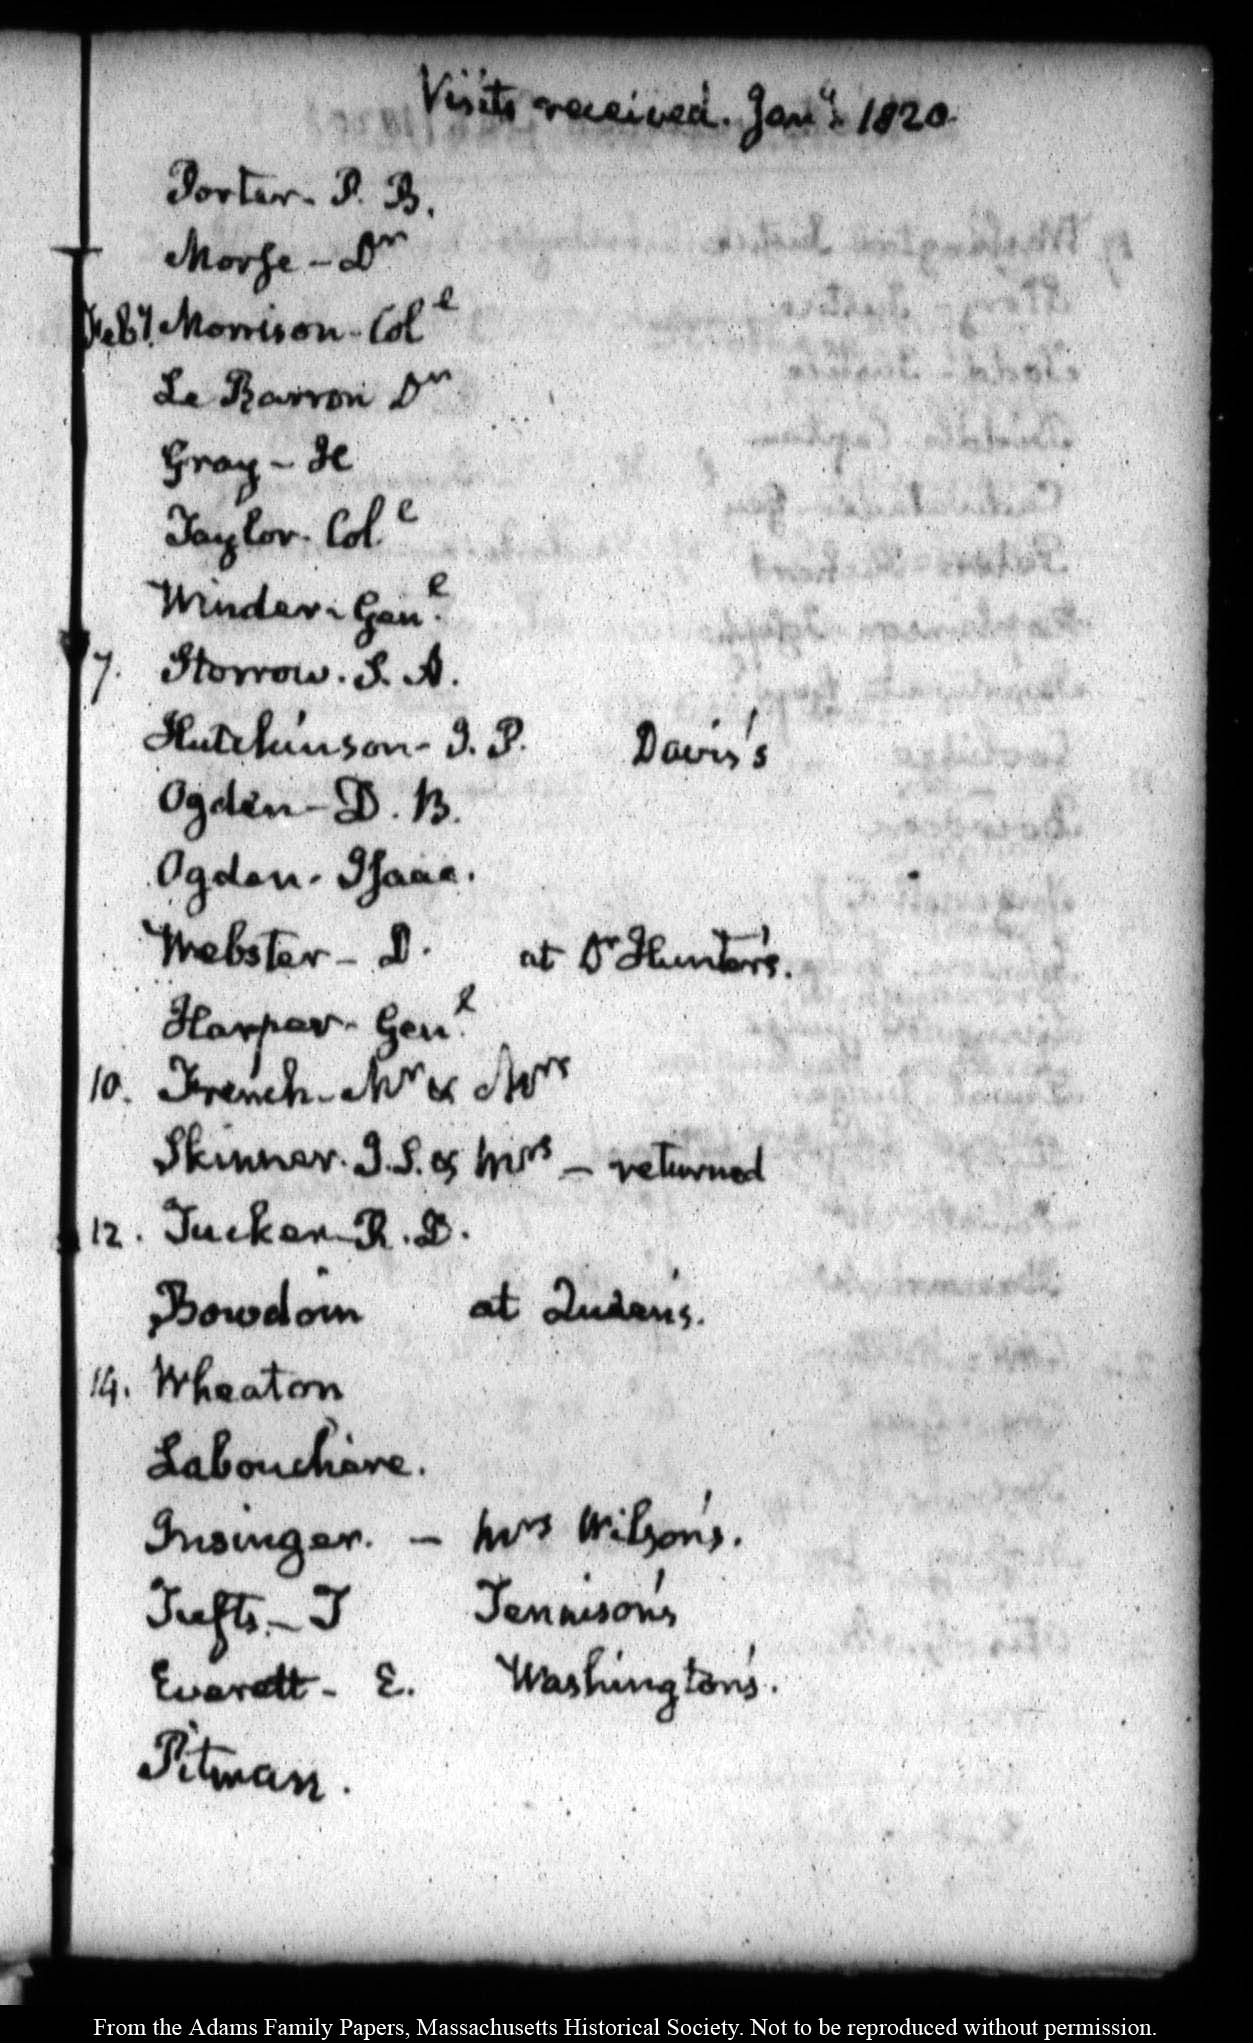 Visits received. Jany. 1820.
Porter - P. B.
Morse - Dr
Feby. Morrison - Cole
Le Barron Dr
Gray - H
Taylor - Col.l
Winder - Genl.
7. Storrow. S. A.
Hutchinson - I. P. Davis's
Ogden - D. B.
Ogden - Isaac.
Webster - D. at Dr Hunter's.
Harper - Genl.
10. French - Mr & Mrs
Skinner. J. S. & Mrs - returned
12. Tucker - R. D.
Bowdoin at Queen's.
14. Wheaton
Labouchere.
Insinger. - Mrs Wilson's.
Tufts. - J Tennison's
Everett - E. Washington's.
Pitman.
From the Adams Family Papers, Massachusetts Historical Society. Not to be reproduced without permission.